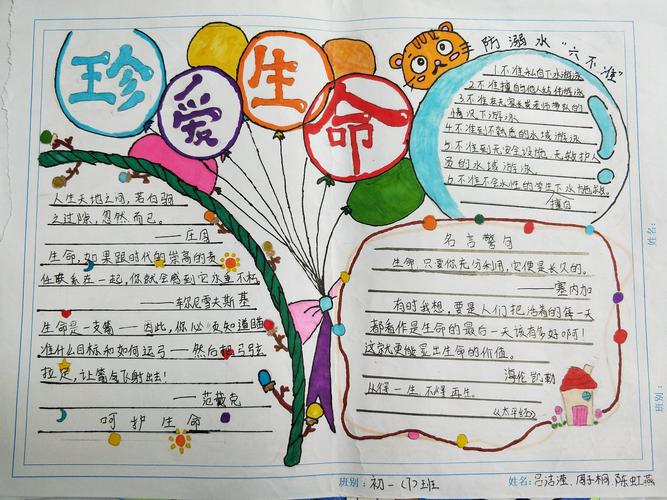 珍爱生命
防溺水"六不准"
1.不准私自下水游泳
2.不准擅自他人结伴游泳
3.不准在无家长或老师带队的
情况下游泳
4.不准到不熟悉的水域游泳
5.不准到无安全设施、无救护人
员的水域游泳
6.不准不会水性的学生下水施救
擅自
人生天地之间,若白驹
之过隙,忽然而已。
——庄周
生命,如果跟时代的崇高的责
任联系在一起,你就会感到它永垂不朽。
——车尔尼雪夫斯基
生命是一支箭——因此,你必须知道瞄
准什么目标和如何运弓——然后把弓弦
拉足,让箭飞射出去!
——范戴克
呵护生命
名言警句
生命,只要你充分利用,它便是长久的。
——塞内加
有时我想,要是人们把活着的每一天
都看作是生命的最后一天该有多好啊!
这就更能显出生命的价值。
海伦凯勒
人得一生,不得再生。
《太平经》
姓名:
班别:
班别:初一(7)班
姓名:吕洁滢、周子桐、陈虹燕